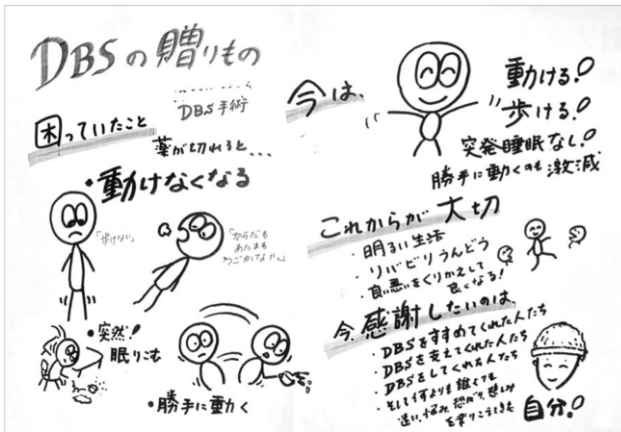 DBSの贈りもの
DBS手術
困っていたこと
薬が切れると...
・動けなくなる
「歩けない」
「からだも
あたまも
うごかない」
・突然!
眠りこむ
・勝手に動く
今は、
動ける!
歩ける!
突発睡眠なし!
勝手に動くのも激減
これからが大切
・明るい生活
・リハビリうんどう
・良い悪いをくりかえして
良くなる!
今、感謝したいのは、
・DBSをすすめてくれた人たち
・DBSを支えてくれた人たち
・DBSをしてくれた人たち
・そして何よりも誰よりも
迷い、悩み、恐がり、悲しみ
を乗りこえた
自分!